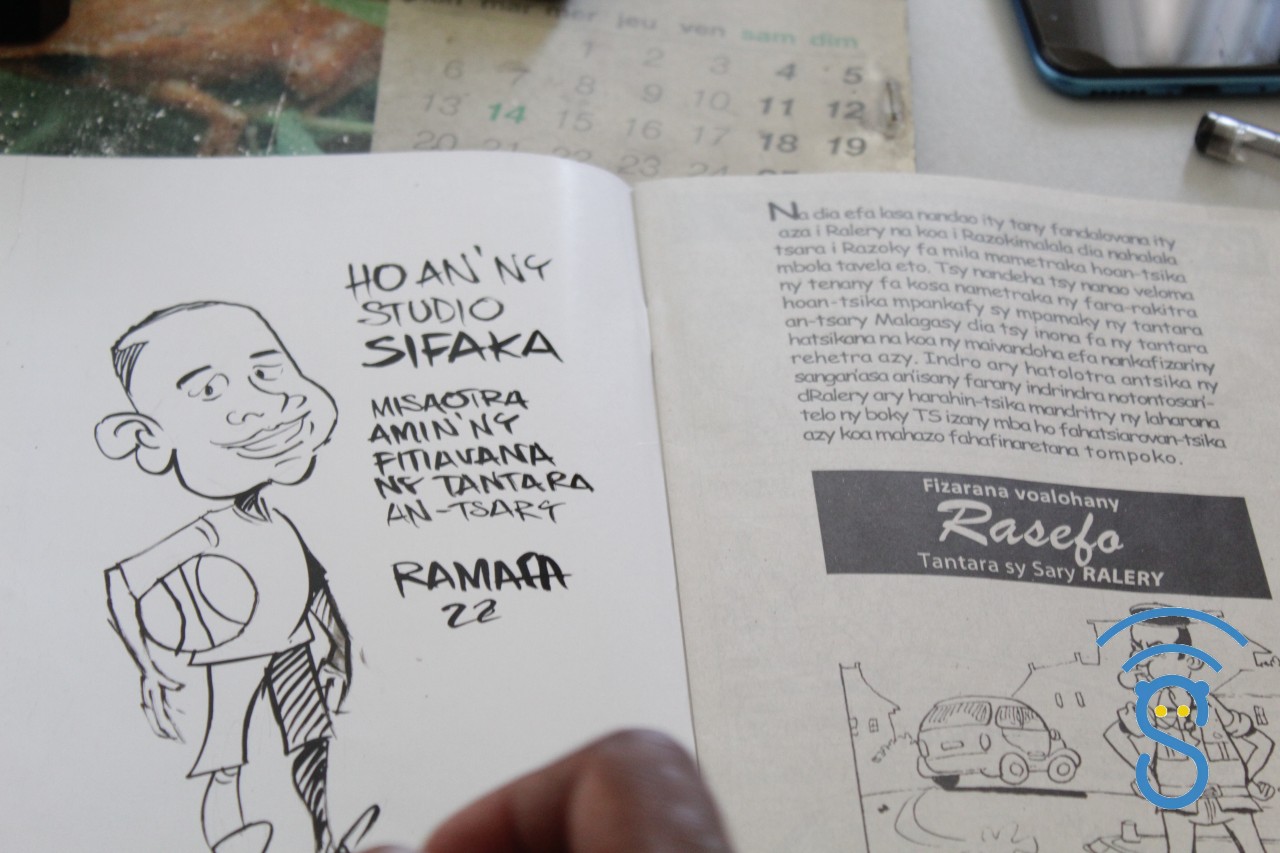 mar mer jeu ven sam dim
1 2 3 4 5
6 7 8 9 10 11 12
13 14 15 16 17 18 19
20 21 22 23 24
HOAN'NY
STUDIO
SIFAKA
MISAOTRA
AMIN'NY
FITIAVANA
NY TANTARA
AN-TSARY
RAMAFA
22
Na dia efa lasa nandao ity tany fandalovana ity
aza i Ralery na koa i Razokimalala dia nahalala
tsara i Razoky fa mila mametraka hoan-tsika
mbola tavela eto. Tsy nandeha tsy nanao veloma
ny tenany fa kosa nametraka ny fara-rakitra
hoan-tsika mpankafy sy mpamaky ny tantara
an-tsary Malagasy dia tsy inona fa ny tantara
hatsikana na koa ny maivandoha efa nankafizariny
rehetra azy. Indro ary hatolotra antsika ny
sangan'asa an'isany farany indrindra notontosan'-
dRalery ary harahin-tsika mandritry ny laharana
telo ny boky TS izany mba ho fahatsiarovan-tsika
azy koa mahazo fahafinaretana tompoko.
Fizarana voalohany
Rasefo
Tantara sy Sary RALERY